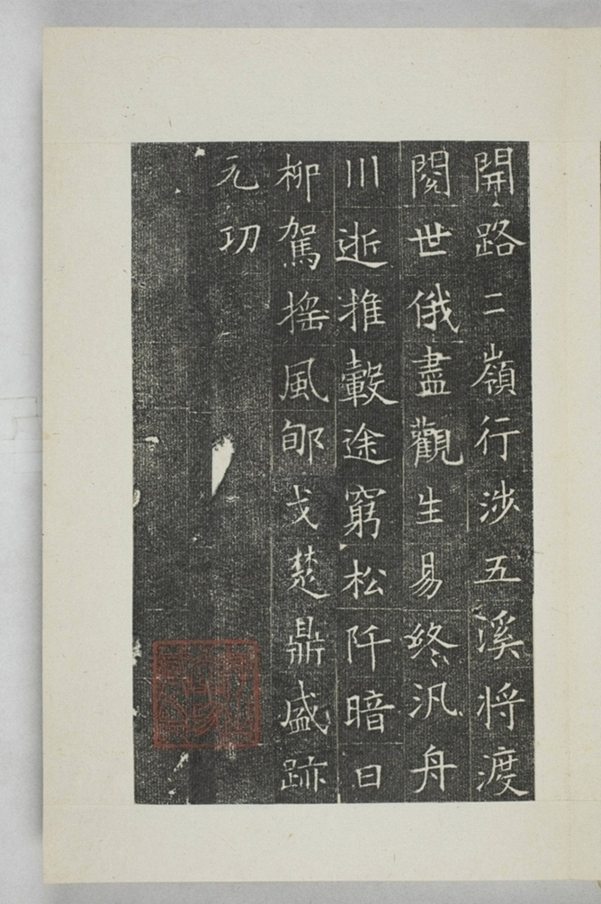 開路二嶺行涉五溪将渡
閱世俄盡觀生易終汎舟
川逝推轂途窮松阡暗日
柳駕摇風郇戈楚鼎盛跡
元功